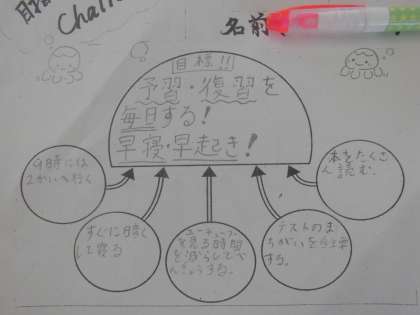 目標
Chall
名前
目標!!
予習・復習を
毎日する!
早寝・早起き!
9時には
2かいへ行く
すぐに暗く
して寝る
ユーチューブ
を見る時間
を減らしてべ
んきょうする。
テストのま
ちがいを
する。
本をたくさ
ん読む。